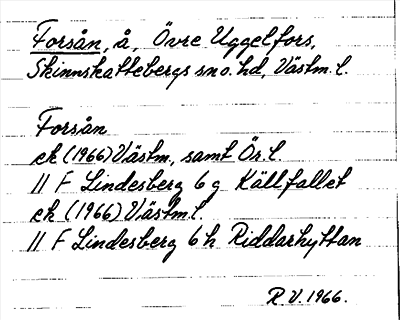 Forsån, å, Övre Uggelfors,
Skinnskattebergs sn o. hd, Västm. l.
Forsån
ek (1966) Västm, samt Ör. l.
11 F Lindesberg 6 g Källfallet
ek (1966) Västm l.
11 F Lindesberg 6 h Riddarhyttan
R.V. 1966.